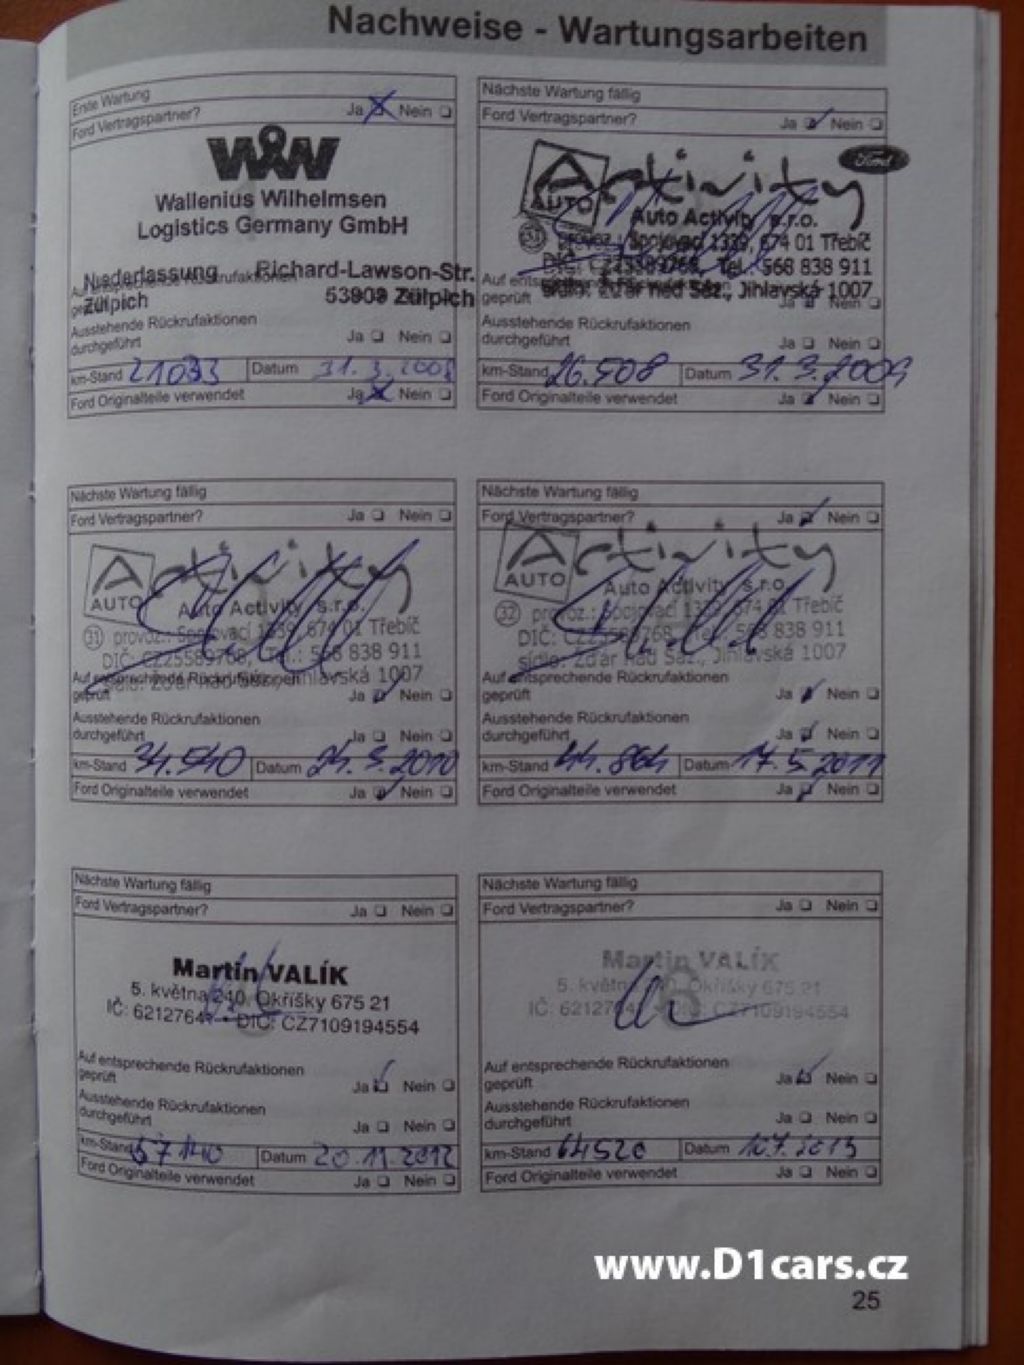 Nachweise - Wartungsarbeiten
Erste Wartung
Ford Vertragspartner? Ja Nein
WW
Wallenius Wilhelmsen
Logistics Germany GmbH
Niederlassung Richard-Lawson-Str.
Zülpich 53909 Zülpich
geprüft
Ausstehende Rückrufaktionen
durchgeführt Ja Nein
km-Stand 21033 Datum 31.3.2008
Ford Originalteile verwendet Ja Nein
Nächste Wartung fällig
Ford Vertragspartner? Ja Nein
Ford
Activity
AUTO
Auto Activity s.r.o.
provoz.: Spojovací 1339, 674 01 Třebíč
DIČ: CZ25589768, Tel.: 568 838 911
sídlo: Žďár nad Sáz., Jihlavská 1007
geprüft Ja Nein
Ausstehende Rückrufaktionen
durchgeführt Ja Nein
km-Stand 26.508 Datum 31.3.2009
Ford Originalteile verwendet Ja Nein
Nächste Wartung fällig
Ford Vertragspartner? Ja Nein
Activity
AUTO
Auto Activity s.r.o.
31 provoz.: Spojovací 1339, 674 01 Třebíč
DIČ: CZ25589768, Tel.: 568 838 911
sídlo: Žďár nad Sáz., Jihlavská 1007
Auf entsprechende Rückrufaktionen
geprüft Ja Nein
Ausstehende Rückrufaktionen
durchgeführt Ja Nein
km-Stand 34.540 Datum 24.3.2010
Ford Originalteile verwendet Ja Nein
Nächste Wartung fällig
Ford Vertragspartner? Ja Nein
Activity
AUTO
Auto Activity s.r.o.
32 provoz.: Spojovací 1339, 674 01 Třebíč
DIČ: CZ25589768, Tel.: 568 838 911
sídlo: Žďár nad Sáz., Jihlavská 1007
Auf entsprechende Rückrufaktionen
geprüft Ja Nein
Ausstehende Rückrufaktionen
durchgeführt Ja Nein
km-Stand 44.864 Datum 17.5.2011
Ford Originalteile verwendet Ja Nein
Nächste Wartung fällig
Ford Vertragspartner? Ja Nein
Martin VALÍK
5. května 240, Okříšky 675 21
DIČ: CZ7109194554
Auf entsprechende Rückrufaktionen
geprüft Ja Nein
Ausstehende Rückrufaktionen
durchgeführt Ja Nein
km-Stand 57140 Datum 20.11.2012
Ford Originalteile verwendet Ja Nein
Nächste Wartung fällig
Ford Vertragspartner? Ja Nein
Martin VALÍK
5. května 240, Okříšky 675 21
DIČ: CZ7109194554
Auf entsprechende Rückrufaktionen
geprüft Ja Nein
Ausstehende Rückrufaktionen
durchgeführt Ja Nein
km-Stand 64520 Datum 10.7.2013
Ford Originalteile verwendet Ja Nein
www.D1cars.cz
25